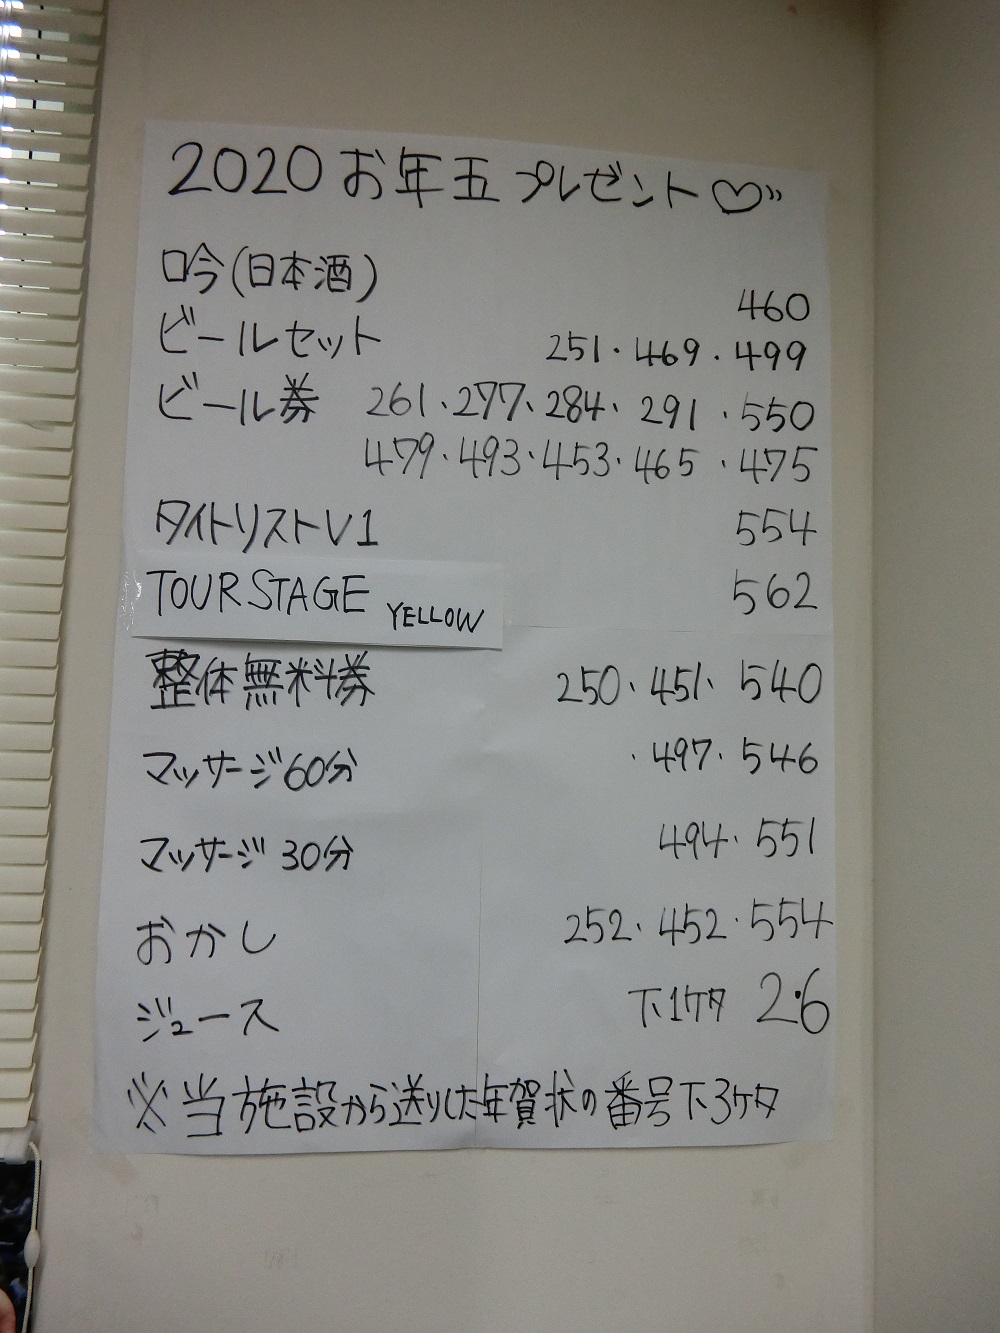 2020 お年玉 プレゼント♡
吟(日本酒) 460
ビールセット 251・469・499
ビール券 261、277、284、291・550
479・493・453・465・475
タイトリストV1 554
TOURSTAGE YELLOW 562
整体無料券 250、451、540
マッサージ60分 ・497・546
マッサージ30分 494・551
おかし 252・452・554
ジュース 下1ケタ 2・6
※当施設から送りした年賀状の番号下3ケタ